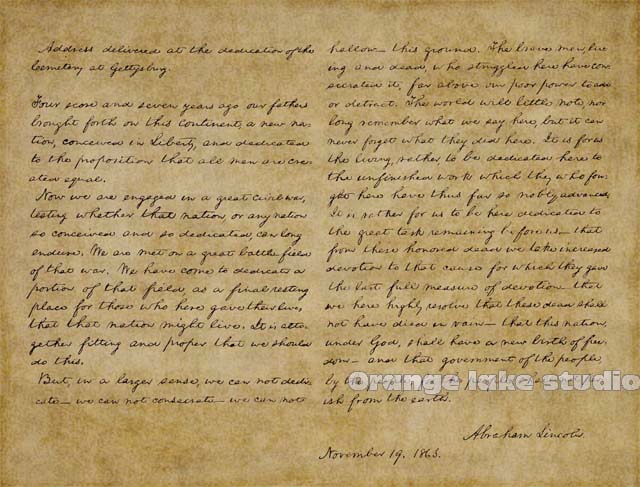 Address delivered at the dedication of the
Cemetery at Gettysburg.
Four score and seven years ago our fathers
brought forth on this continent, a new na-
tion, conceived in Liberty, and dedicated
to the proposition that all men are cre-
ated equal.
Now we are engaged in a great civil war,
testing whether that nation, or any nation
so conceived and so dedicated, can long
endure. We are met on a great battle field
of that war. We have come to dedicate a
portion of that field, as a final resting
place for those who here gave their lives,
that that nation might live. It is alto-
gether fitting and proper that we should
do this.
But, in a larger sense, we can not dedi-
cate— we can not consecrate— we can not
hallow— this ground. The brave men, liv-
ing and dead, who struggled here have con-
secrated it, far above our poor power to add
or detract. The world will little note, nor
long remember what we say here, but it can
never forget what they did here. It is for us
the living, rather, to be dedicated here to
the unfinished work which they who fou-
ght here have thus far so nobly advanced.
It is rather for us to be here dedicated to
the great task remaining before us— that
from these honored dead we take increased
devotion to that cause for which they gave
the last full measure of devotion— that
we here highly resolve that these dead shall
not have died in vain— that this nation,
under God, shall have a new birth of free-
dom— and that government of the people,
by the
Orange lake studio
ish from the earth.
Abraham Lincoln.
November 19, 1863.